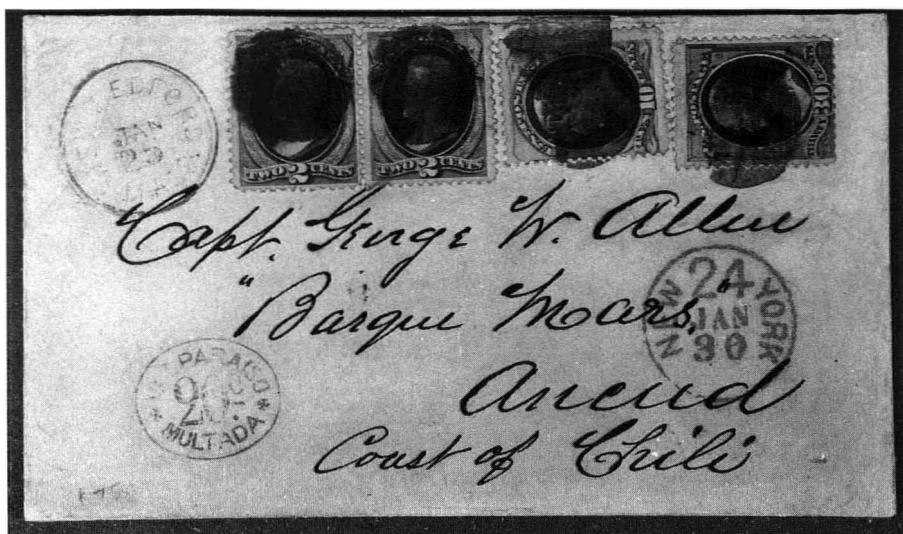 EDFORD
JAN
TWO 2 CENTS
TWO 2 CENTS
10
30
Capt. George W. Allen
"Barque Mars,"
Ancud
Coast of Chili
NEW YORK
24
JAN
30
PARAISO
MULTADA